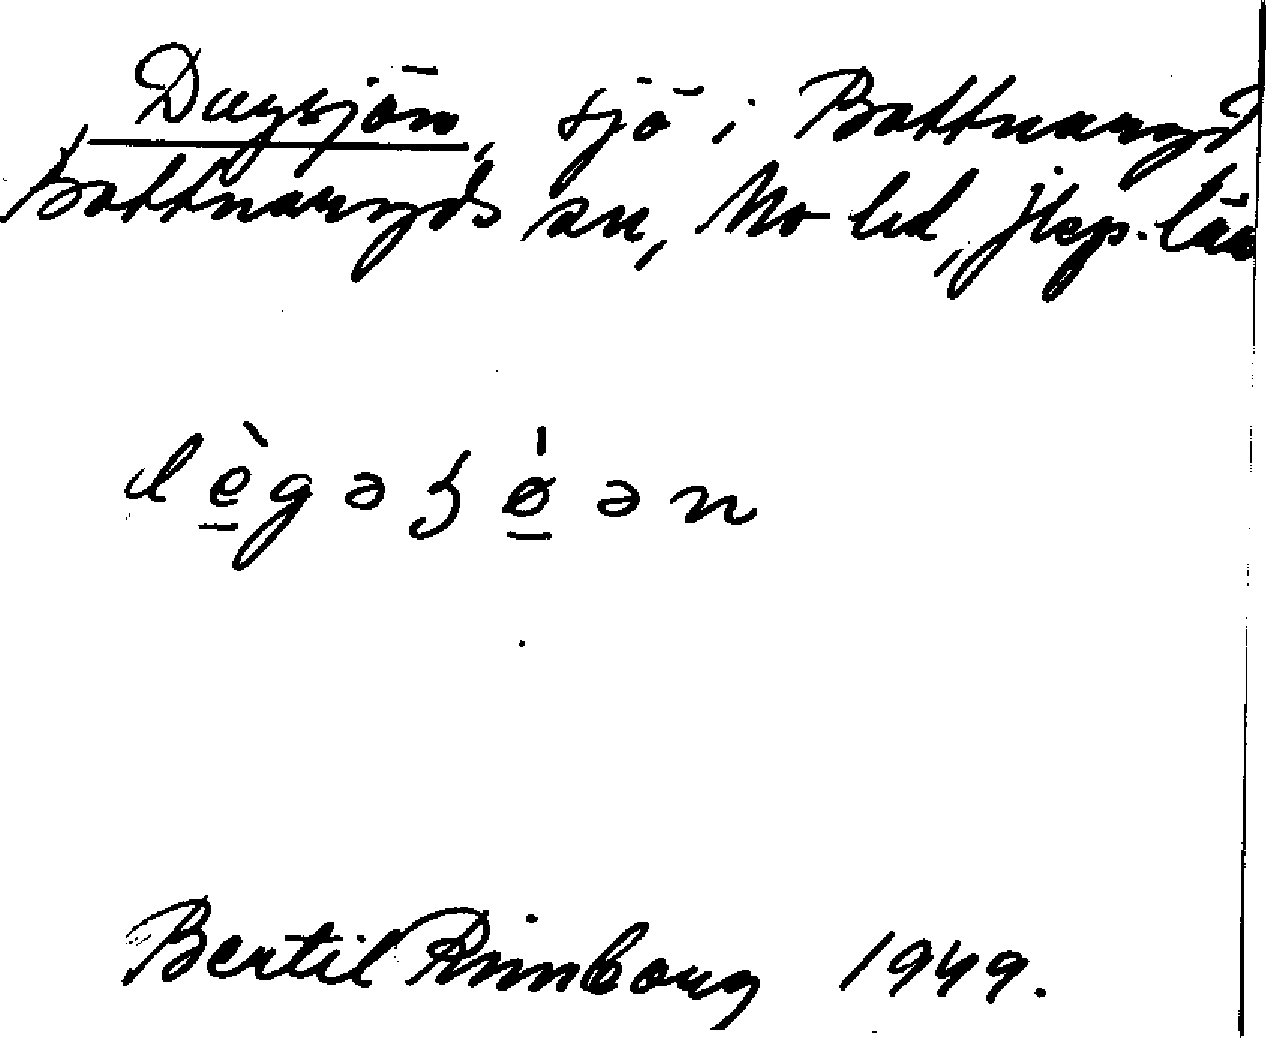 sjö i Bottnaryd
Bottnaryds sn, Mo hd, Jkp. län
dè̱gəʂǿ̱ən
Bertil Rimborg 1949.